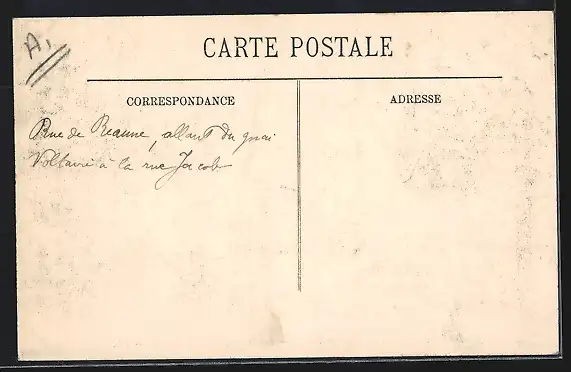 A,
CARTE POSTALE
CORRESPONDANCE
ADRESSE
Rue de Beaune, allant du quai
Voltaire à la rue Jacob